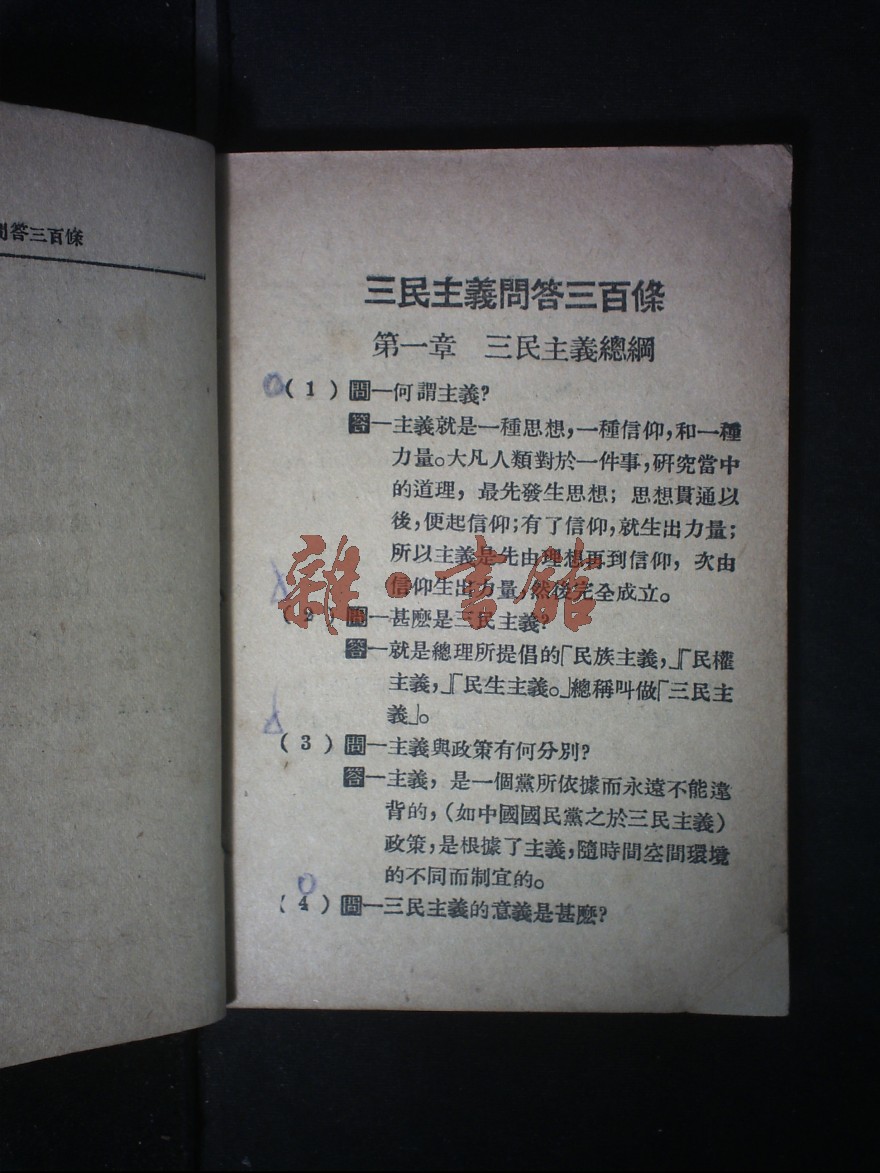 答三百條
三民主義問答三百條
第一章　三民主義總綱
(1)問—何謂主義?
答—主義就是一種思想,一種信仰,和一種
力量。大凡人類對於一件事,研究當中
的道理,最先發生思想;思想貫通以
後,便起信仰;有了信仰,就生出力量;
所以主義是先由理想再到信仰,次由
信仰生出力量,然後完全成立。
(2)問—甚麽是三民主義?
答—就是總理所提倡的「民族主義,」「民權
主義,」「民生主義。」總稱叫做「三民主
義」。
(3)問—主義與政策有何分別?
答—主義,是一個黨所依據而永遠不能違
背的,(如中國國民黨之於三民主義)
政策,是根據了主義,隨時間空間環境
的不同而制宜的。
(4)問—三民主義的意義是甚麽?
雜·書館